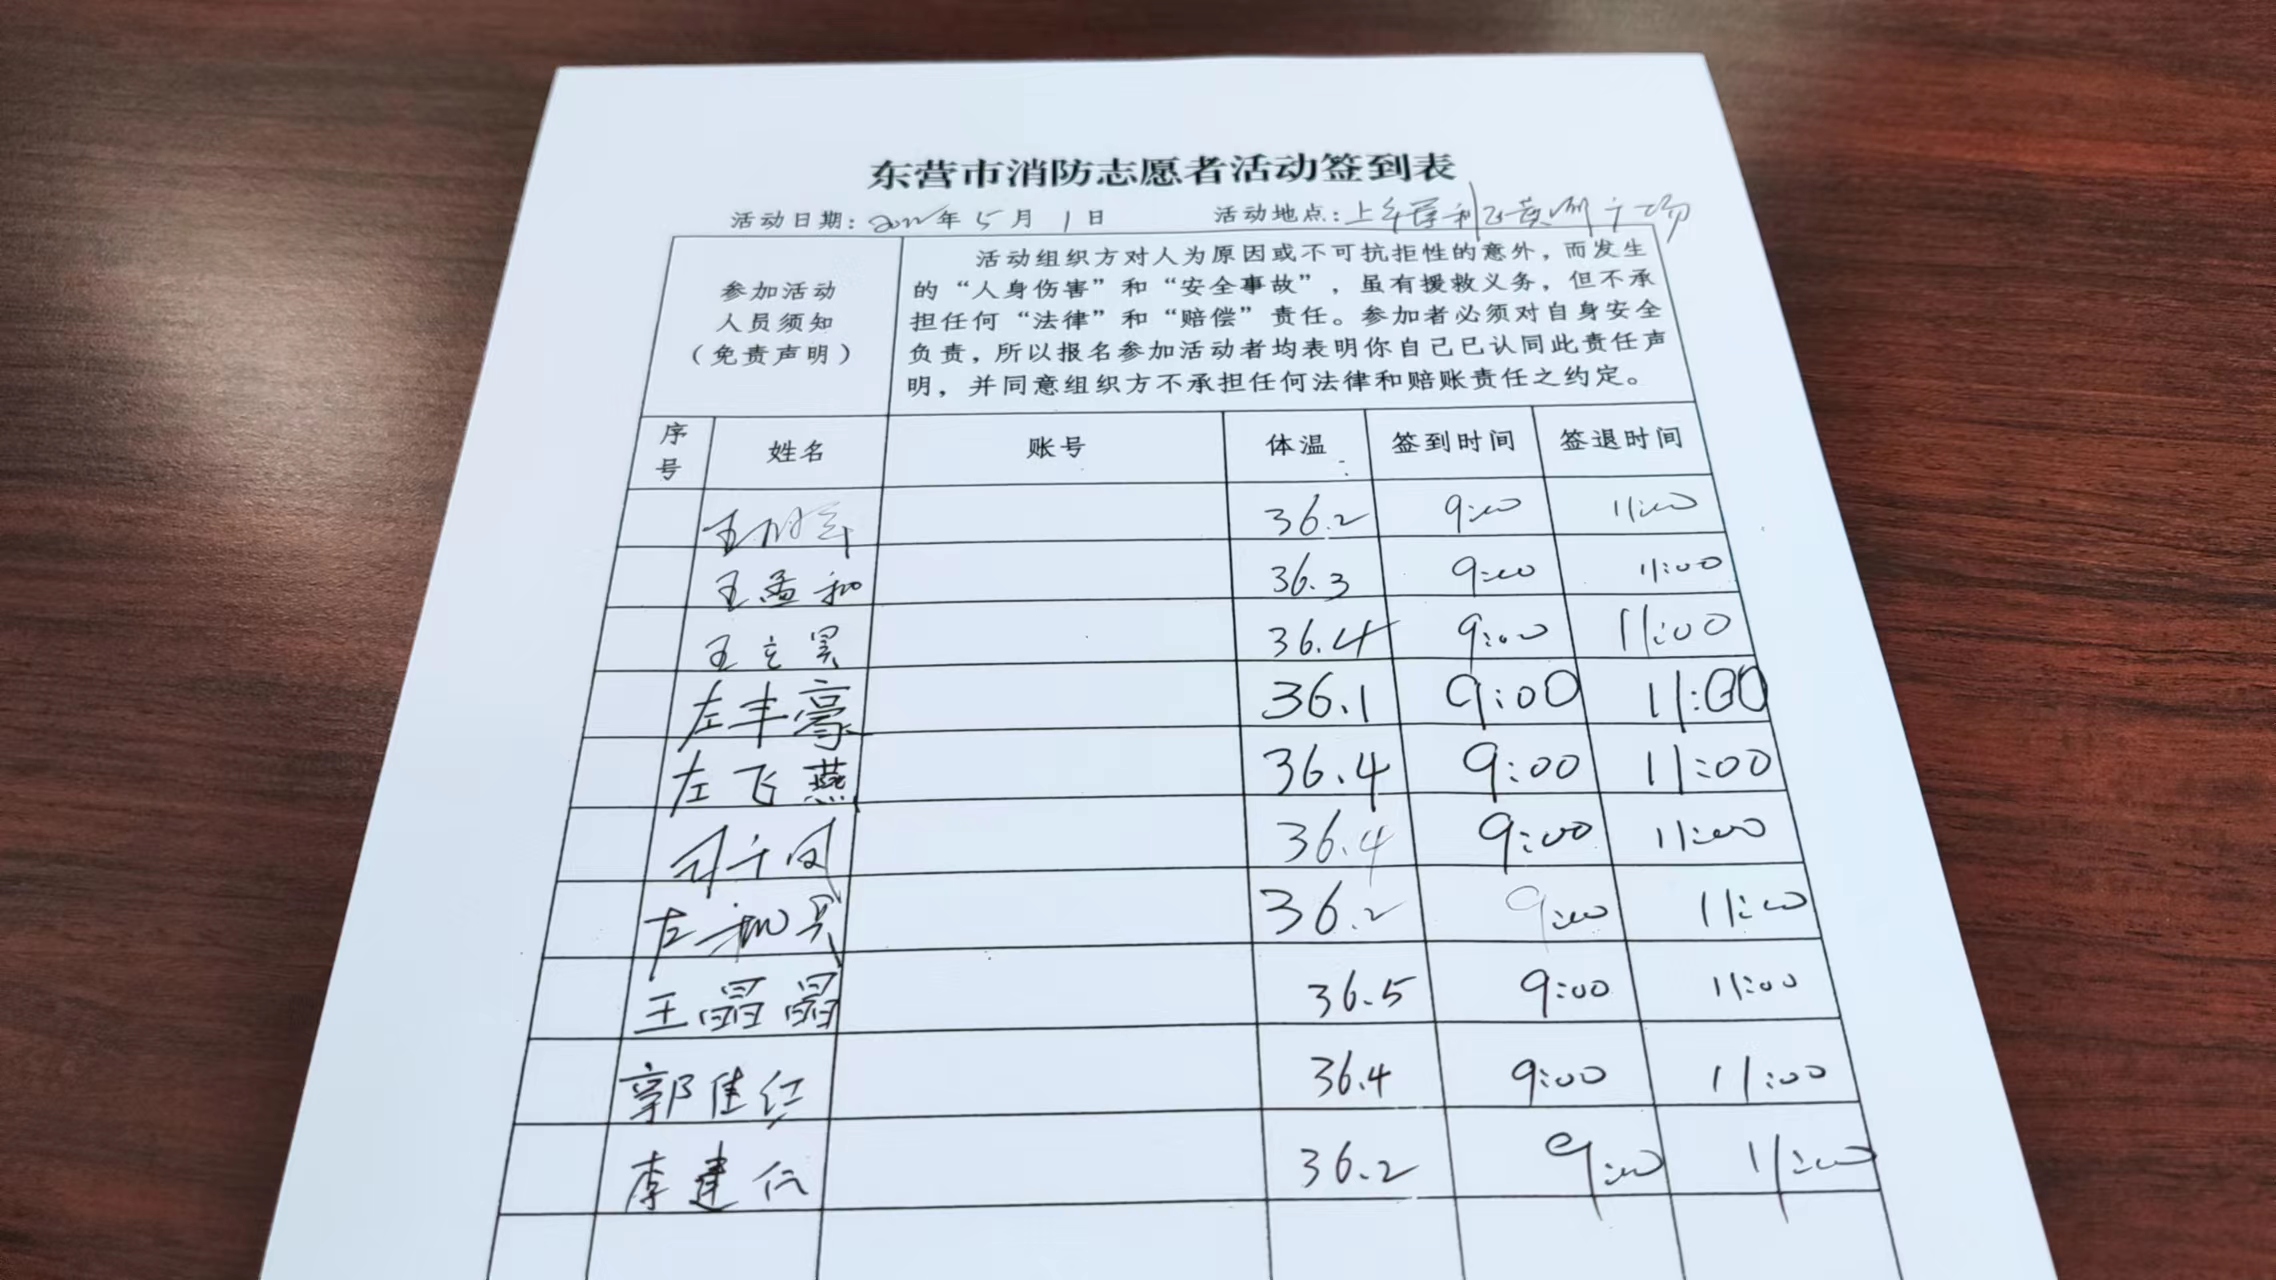 东营市消防志愿者活动签到表
活动日期：2022年5月1日 活动地点：
参加活动
人员须知
（免责声明）
活动组织方对人为原因或不可抗拒性的意外，而发生
的“人身伤害”和“安全事故”，虽有援救义务，但不承
担任何“法律”和“赔偿”责任。参加者必须对自身安全
负责，所以报名参加活动者均表明你自己已认同此责任声
明，并同意组织方不承担任何法律和赔账责任之约定。
序号 姓名 账号 体温 签到时间 签退时间
王 36.2 9:00 11:00
王孟和 36.3 9:00 11:00
王立昊 36.4 9:00 11:00
左丰豪 36.1 9:00 11:00
左飞燕 36.4 9:00 11:00
36.4 9:00 11:00
左 36.2 9:00 11:00
王晶晶 36.5 9:00 11:00
郭佳红 36.4 9:00 11:00
李建仁 36.2 9:00 11:00